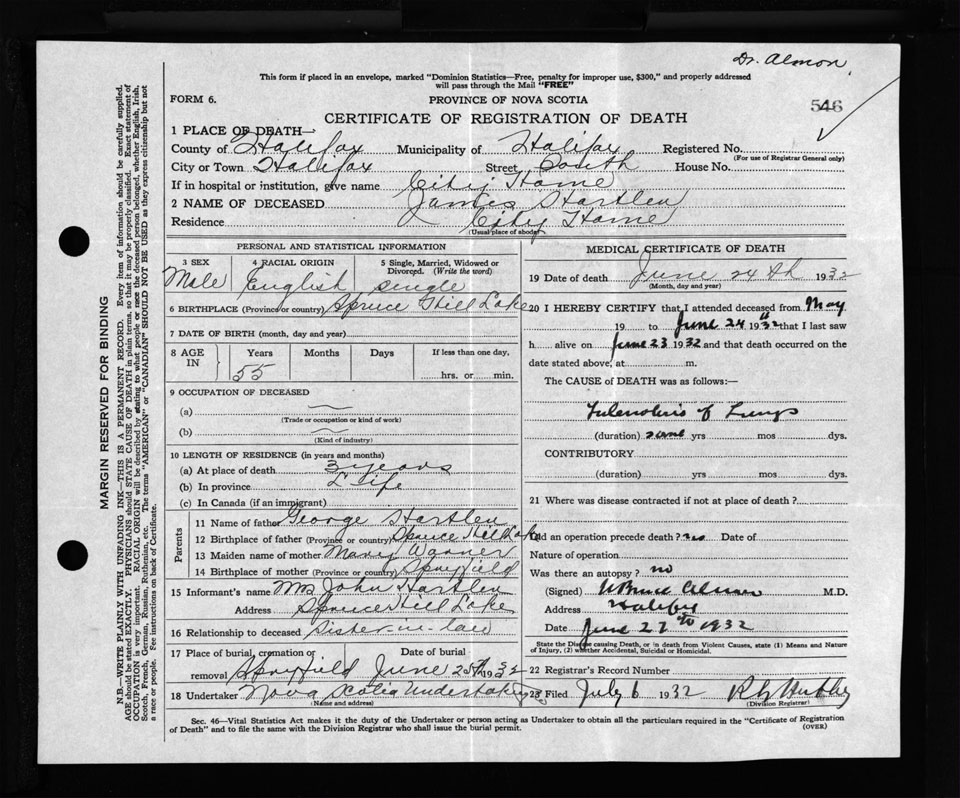 Dr. Almon
This form if placed in an envelope, marked "Dominion Statistics—Free, penalty for improper use, $300," and properly addressed
will pass through the Mail "FREE"
546
FORM 6.
PROVINCE OF NOVA SCOTIA
CERTIFICATE OF REGISTRATION OF DEATH
1 PLACE OF DEATH—
County of Halifax Municipality of Halifax Registered No.
(For use of Registrar General only)
City or Town Halifax Street South House No.
If in hospital or institution, give name City Home
2 NAME OF DECEASED James Hartlen
Residence City Home
(Usual place of abode)
PERSONAL AND STATISTICAL INFORMATION
3 SEX
Male
4 RACIAL ORIGIN
English
5 Single, Married, Widowed or
Divorced. (Write the word)
single
6 BIRTHPLACE (Province or country) Spruce Hill Lake
7 DATE OF BIRTH (month, day and year)
8 AGE
IN
Years
55
Months
Days
If less than one day,
hrs. or min.
9 OCCUPATION OF DECEASED
(a)
(Trade or occupation or kind of work)
(b)
(Kind of industry)
10 LENGTH OF RESIDENCE (in years and months)
(a) At place of death 3 years
(b) In province Life
(c) In Canada (if an immigrant)
Parents
11 Name of father George Hartlen
12 Birthplace of father (Province or country) Spruce Hill Lake
13 Maiden name of mother Mary Warner
14 Birthplace of mother (Province or country) Spryfield
15 Informant's name Mrs John Hartlen
Address Spruce Hill Lake
16 Relationship to deceased Sister-in-law
17 Place of burial, cremation or
removal Spryfield
Date of burial
June 25th 1932
18 Undertaker Nova Scotia Undertaking
(Name and address)
MEDICAL CERTIFICATE OF DEATH
19 Date of death June 24th 1932
(Month, day and year)
20 I HEREBY CERTIFY that I attended deceased from May
19 to June 24th 1932 that I last saw
h alive on June 23 1932 and that death occurred on the
date stated above, at m.
The CAUSE of DEATH was as follows:—
of Lungs
(duration) some yrs mos dys.
CONTRIBUTORY
(duration) yrs mos dys.
21 Where was disease contracted if not at place of death?
Did an operation precede death? no Date of
Nature of operation
Was there an autopsy? no
(Signed) W Bruce Almon M.D.
Address Halifax
Date June 27th 1932
State the Disease causing Death, or in death from Violent Causes, state (1) Means and Nature
of Injury, (2) whether Accidental, Suicidal or Homicidal.
22 Registrar's Record Number
23 Filed July 6 1932
(Division Registrar)
Sec. 46—Vital Statistics Act makes it the duty of the Undertaker or person acting as Undertaker to obtain all the particulars required in the "Certificate of Registration
of Death" and to file the same with the Division Registrar who shall issue the burial permit.
(OVER)
MARGIN RESERVED FOR BINDING
N.B.—WRITE PLAINLY WITH UNFADING INK—THIS IS A PERMANENT RECORD. Every item of information should be carefully supplied.
AGE should be stated EXACTLY. PHYSICIANS should STATE CAUSE OF DEATH in plain terms, so that it may be properly classified. Exact statement of
OCCUPATION is very important. RACIAL ORIGIN will be described by stating to what people or race the deceased person belonged, whether English, Irish,
Scotch, French, German, Russian, Ruthenian, etc. The terms "AMERICAN" or "CANADIAN" SHOULD NOT BE USED as they express citizenship but not
a race or people. Fee instructions on back of Certificate.